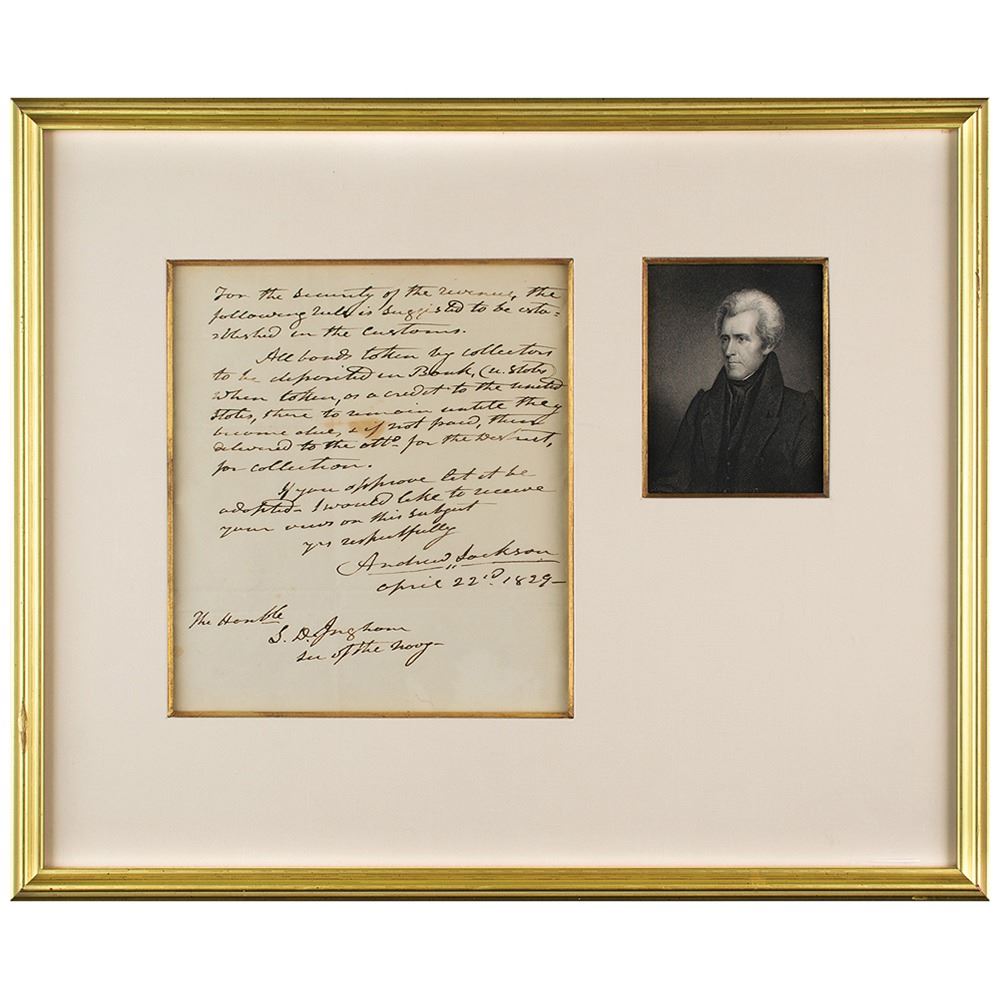 For the security of the revenue, the
following rule is suggested to be esta-
blished in the Customs.
All bonds taken by collectors
to be deposited in Bank, (u. States)
when taken, as a credit to the united
States, there to remain untill they
become due, & if not paid, then
delivered to the atto. for the District,
for collection.
If you approve let it be
adopted – I would like to receive
your views on this subject
yrs respectfully
Andrew Jackson
April 22nd. 1829 –
The Honble
S. D. Ingham
sec of the